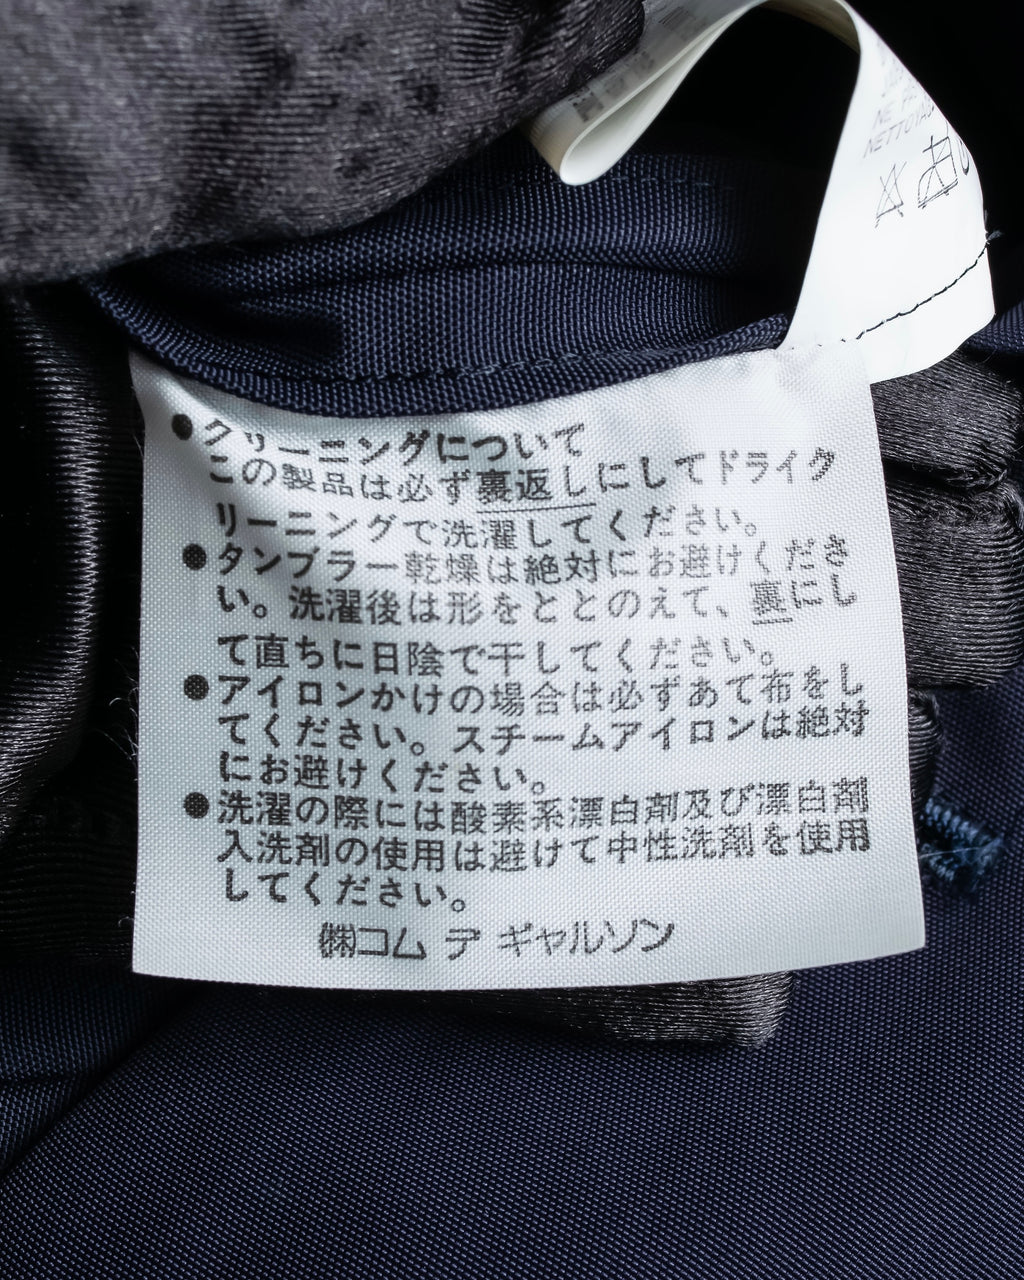 NE PAS
NETTOYAGE
●クリーニングについて
この製品は必ず裏返しにしてドライク
リーニングで洗濯してください。
●タンブラー乾燥は絶対にお避けくださ
い。洗濯後は形をととのえて、裏にし
て直ちに日陰で干してください。
●アイロンかけの場合は必ずあて布をし
てください。スチームアイロンは絶対
にお避けください。
●洗濯の際には酸素系漂白剤及び漂白剤
入洗剤の使用は避けて中性洗剤を使用
してください。
㈱コム デ ギャルソン